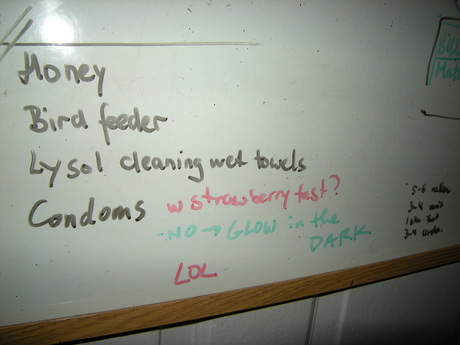 Honey
Bird feeder
Lysol cleaning wet towels
Condoms w strawberry tast?
NO → GLOW in the
DARK
LOL
5-6
3-4
3-4